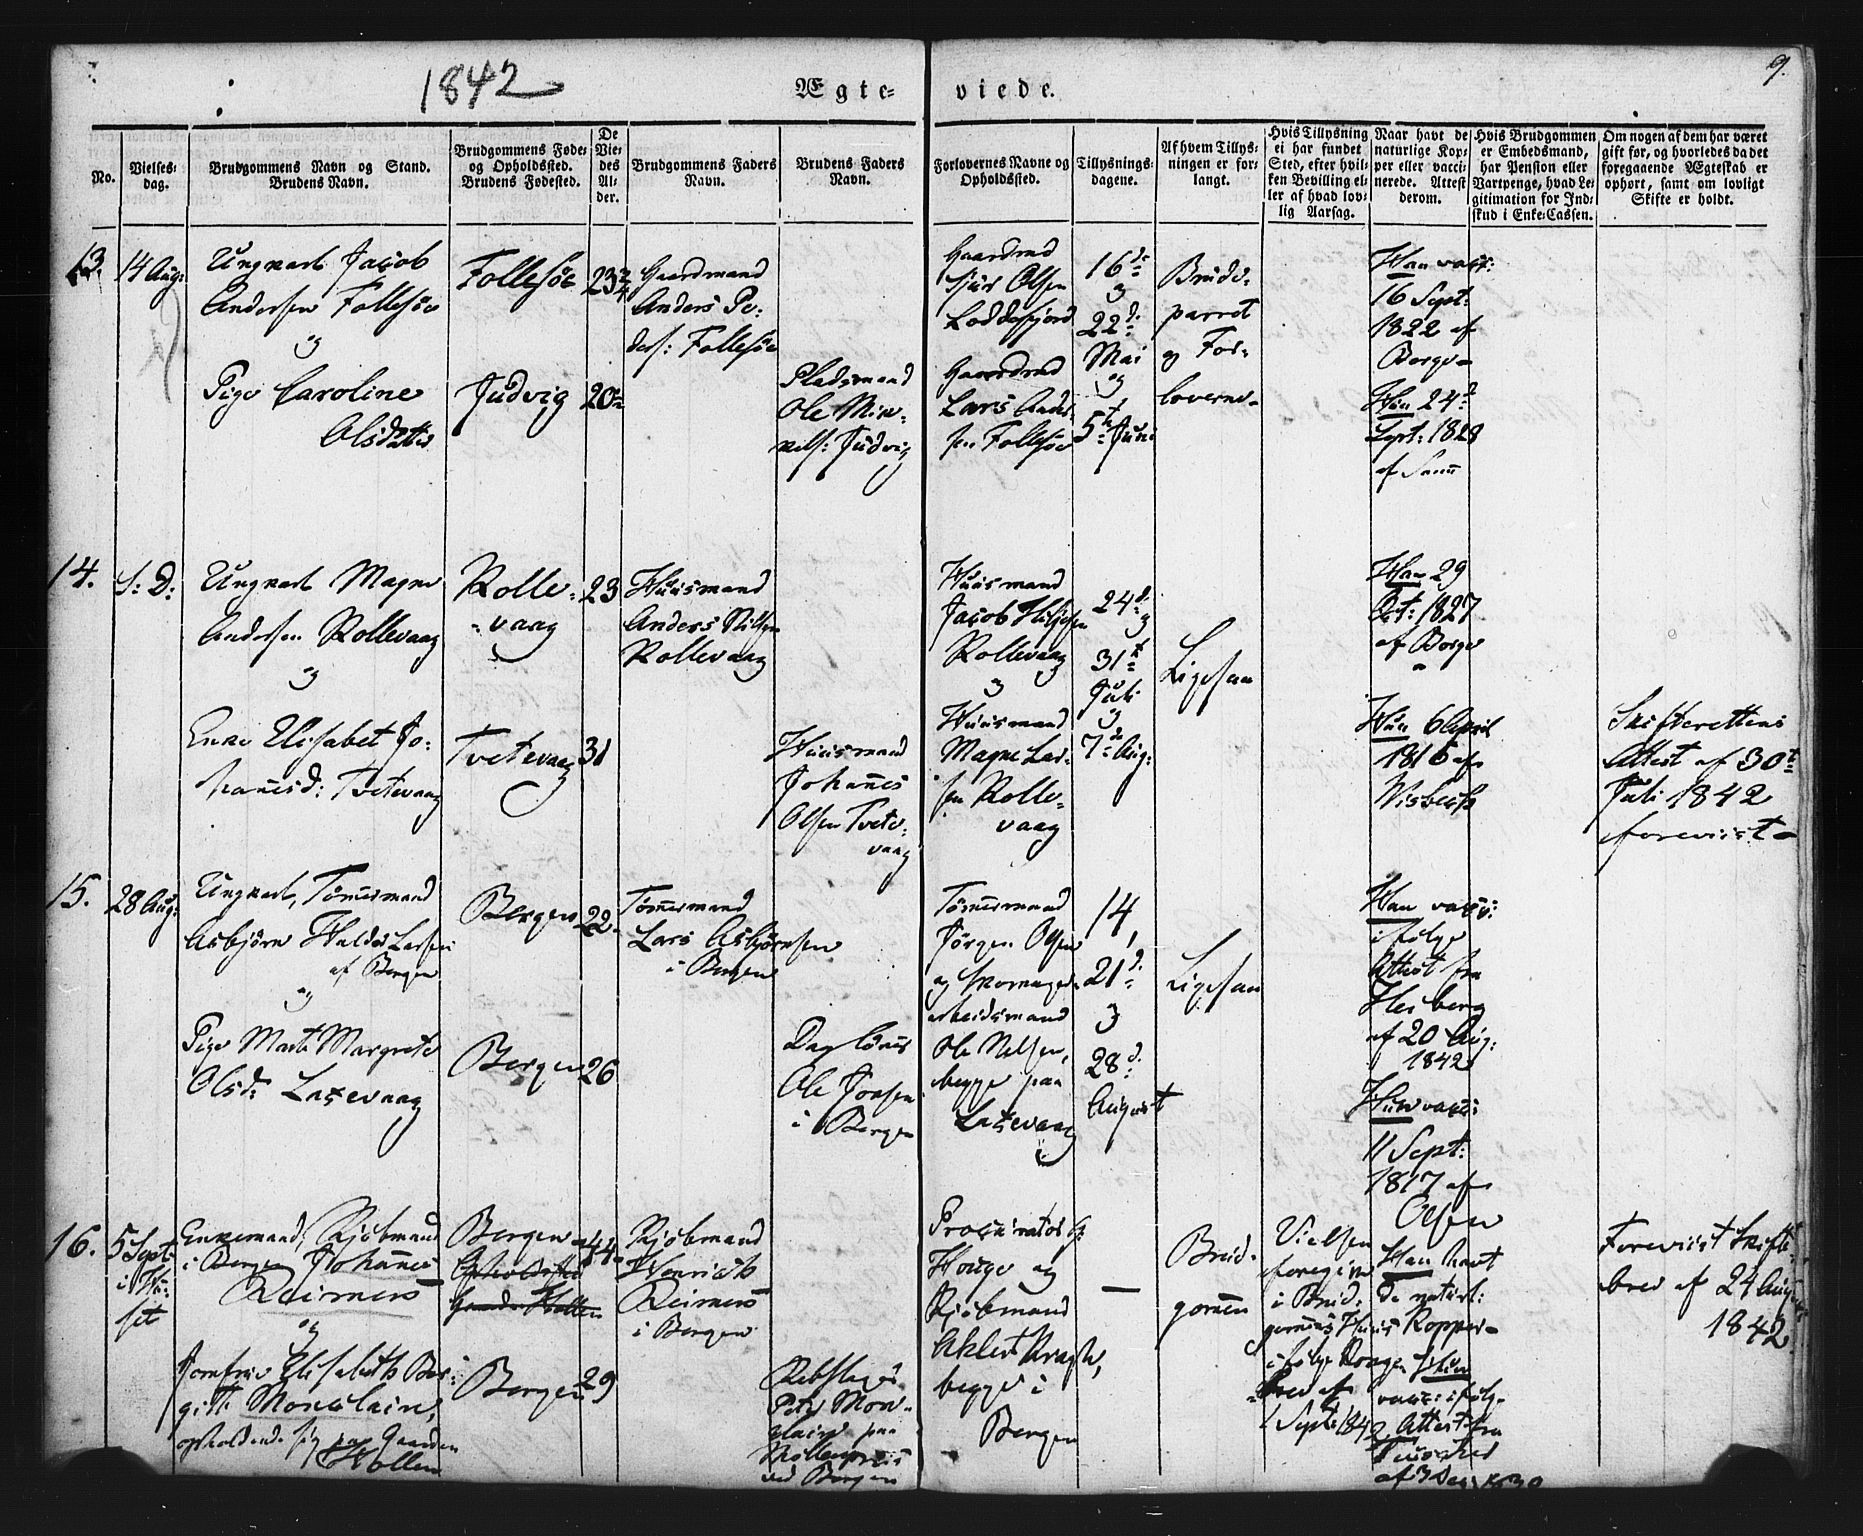 1842
Ægte-
viede.
9.
No.
Vielses-
dag.
Brudgommens Navn og Stand.
Brudens Navn.
Brudgommens Føde-
og Opholdssted.
Brudens Fødested.
De
Vie-
des
Al-
der.
Brudgommens Faders
Navn.
Brudens Faders
Navn.
Forlovernes Navne og
Opholdssted.
Tillysnings-
dagene.
Af hvem Tillys-
ningen er for-
langt.
Hvis Tillysning
ei har fundet
Sted, efter hvil-
ken Bevilling el-
ler af hvad lov-
lig Aarsag.
Naar havt de
naturlige Kop-
per eller vacci-
nerede. Attest
derom.
Hvis Brudgommen
er Embedsmand,
har Pension eller
Vartpenge, hvad Le-
gitimation for Ind-
skud i Enke-Cassen.
Om nogen af dem har været
gift før, og hvorledes da det
foregaaende Ægteskab er
ophørt, samt om lovligt
Skifte er holdt.
13.
14 Aug:
Ungkarl Jacob
Andersen Follesøe
og
Pige Caroline
Olsdatter
Follesøe
Judvig
23 3/4
20
Gaardmand
Anders Pe-
ders: Follesøe
Pladsmand
Ole Mik-
kels: Judvig
Gaardmd
Sjur Olsen
Loddefjord
Gaardmd
Lars Ander-
sen Follesøe
16de
og
22de
Mai
og
5te Juni
Brude-
parret
og For-
loverne
Han vacc:
16 Sept:
1822 af
Borge
Hun 24de
Sept: 1828
af Sann
14.
S: D:
Ungkarl Magne
Andersen Rollevaag
og
Enke Elisabet Jo-
hannesd: Tvetevaag
Rolle-
vaag
Tvetevaag
23
31
Huusmand
Anders Nilsen
Rollevaag
Huusmand
Johannes
Olsen Tvete-
vaag
Huusmand
Jacob
Rollevaag
og
Huusmand
Magne Lar-
sen Rolle-
vaag
24de
og
31te
Juli
og
7de Aug:
Ligesaa
Han 29
Oct: 1827
af Borge
Hun 6 April
1816 af
Skifterettens
Attest af 30te
Juli 1842
foreviist
15.
28 Aug:
Ungkarl, Tømmermand
Asbjørn Larsen
af Bergen
og
Pige Marte Margrete
Olsd: Laxevaag
Bergen
Bergen
22
26
Tømmermand
Lars Asbjørnsen
i Bergen
Dagleier
Ole Jonsen
i Bergen
Tømmermand
Jørgen Olsen
og Skomager-
arbeidsmand
Ole Nilsen,
begge paa
Laxevaag
14,
21de
og
28de
August
Ligesaa
Han vacc:
ifølge
Attest fra
Heiberg
af 20 Aug:
1842
Hun vacc:
11 Sept:
1817 af
Olsen
16.
5 Sept:
i Hu-
set
Enkemand, Kjøbmand
i Bergen Johannes
Reimers
og
Jomfrue Elisabeth Ber-
gitte Monclair,
opholdende sig paa Gaarden
Hollen
Bergen
Bergen
44
29
Kjøbmand
Henrich
Reimers
i Bergen
Rebslager
Peter Mon-
clair paa
Møllenpriis
ved Bergen
Procurator
Houge og
Kjøbmand
Ahlert Kragh,
begge i
Bergen
Brud-
gommen
Vielsen
foregik
i Brud-
gommens Huus
ifølge Konge-
brev af
1 Sept: 1842
Han havt
de naturl:
Kopper
Hun
vacc: ifølg
Attest fra
Foreviist Skifte-
brev af 24 August
1842.